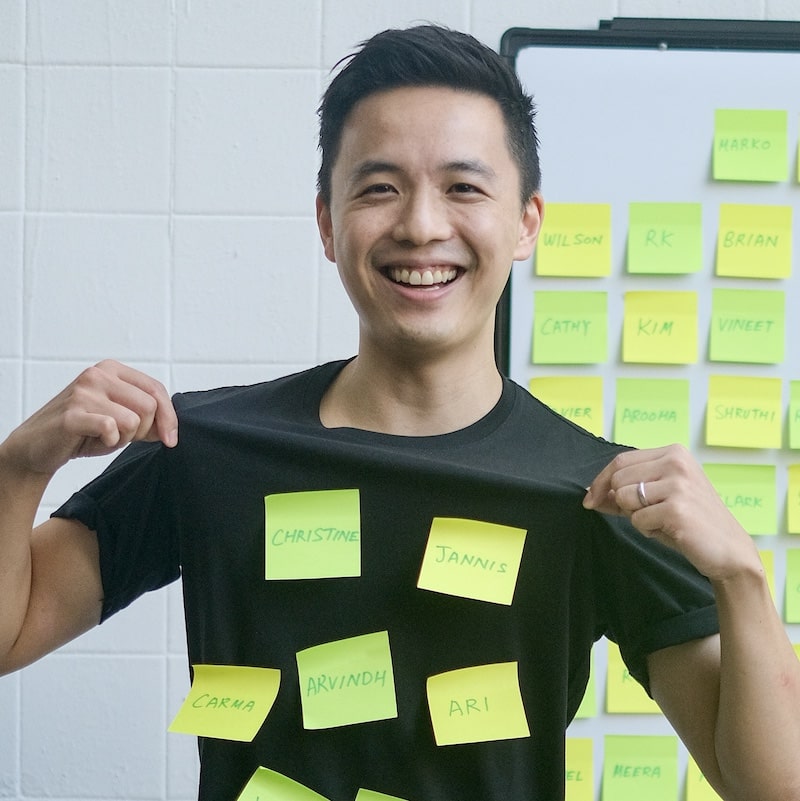 MARKO
WILSON
RK
BRIAN
CATHY
KIM
VINEET
AROOMA
SHRUTHI
CHRISTINE
JANNIS
CARMA
ARVINDH
ARI
MEERA